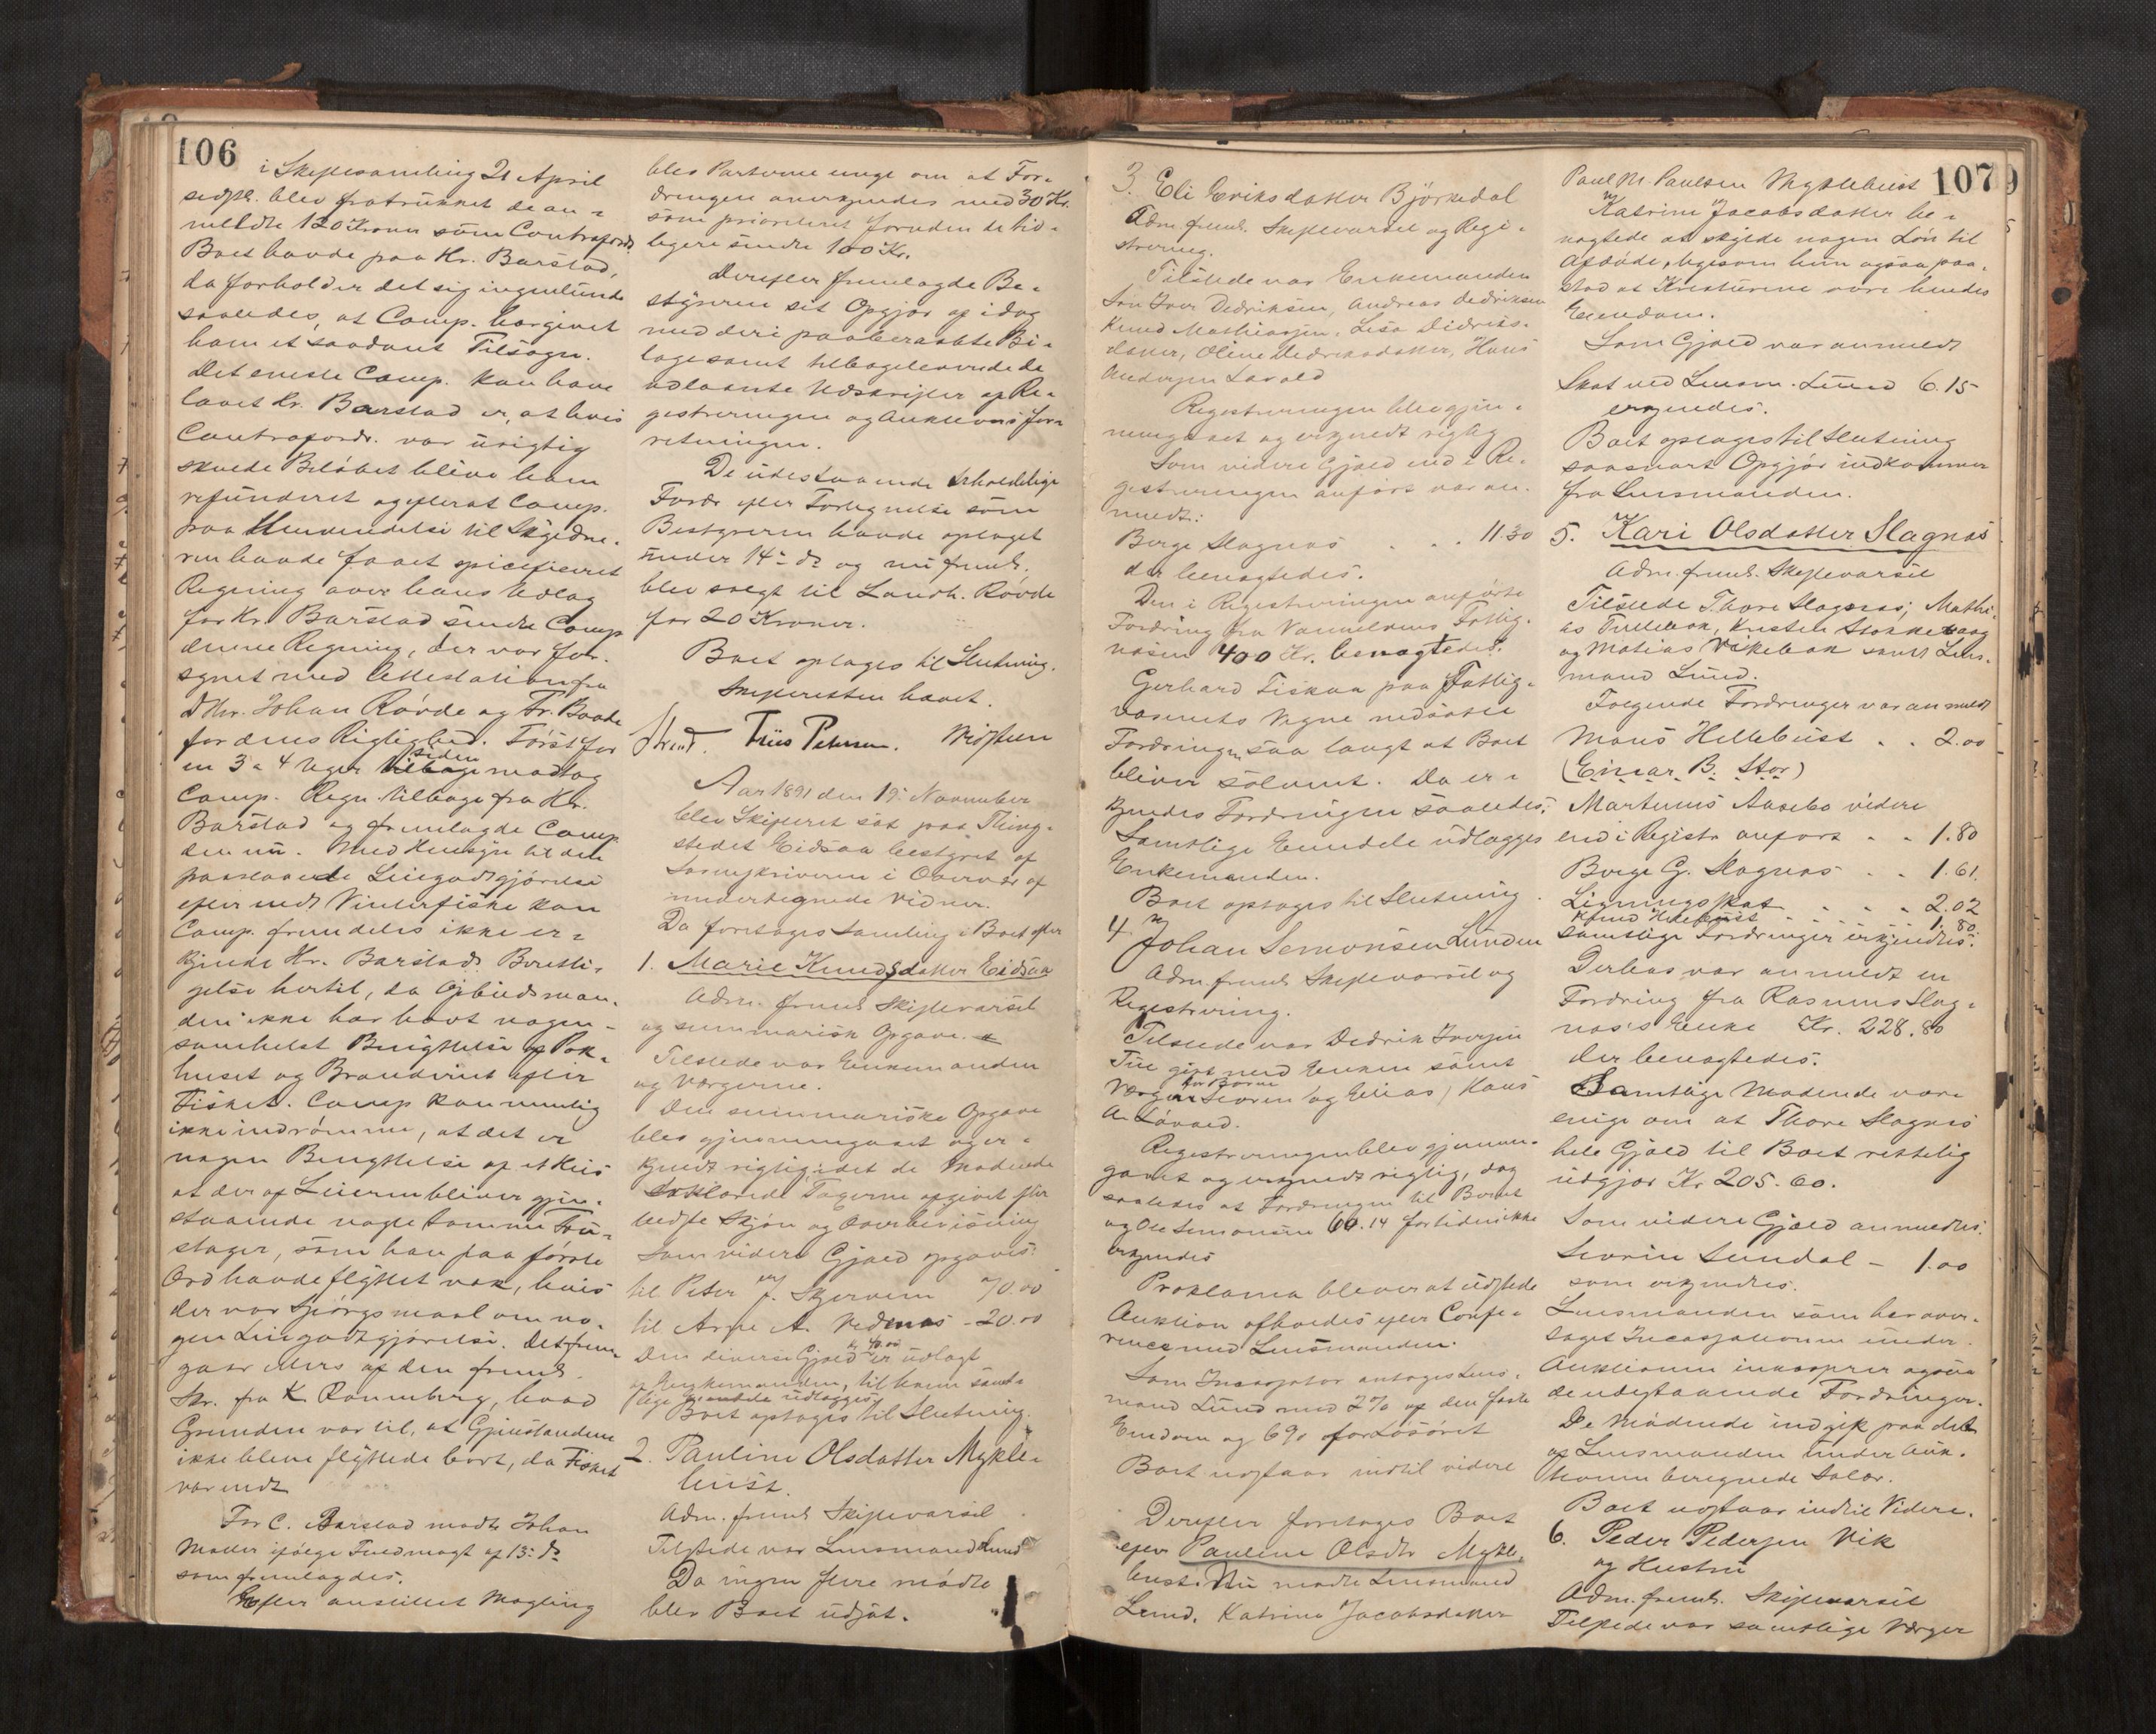 106
i Skiftesamling 21 April
sidstl. blev fratrukket de an=
meldte 120 Kroner som Contrafordr.
Boet havde paa Hr. Barstad,
da forholder det sig ingenlunde
saaledes, at Comp. har givet
ham et saadant Tilsagn.
Det eneste Comp. kan have
lovet Hr. Barstad er, at hvis
Contrafordr. var urigtig
skulde Beløbet blive ham
refunderet og efterat Comp.
paa Henvendelse til Skydne.
ren havde faaet specificeret
Regning over hans Udlag
for Hr. Barstad sendte Comp
denne Regning, der var for.
synet med Attestation fra
Hr. Johan Røvde og Fr. Baade
for dens Rigtighed. Først for
en 3 a 4 Uger siden modtog
Comp. Regn. tilbage fra Hr.
Barstad og fremlagde Comp
den nu. Med Hensyn til den
paastaaede Leiegodtgjørelse
efter endt Vinterfiske kan
Comp. fremdeles ikke er=
kjende Hr. Barstads Beretti=
gelse hertil, da Opbudsman.
den ikke har havt nogen=
somhelst Benyttelse af Pak=
huset og Brænderiet efter
Fisket. Comp kan nemlig
ikke indrømme, at det er
nogen Benyttelse af et Huis
at der af Leieren bliver gjen=
staaende nogle tomme Fu=
stager, som han paa første
Ord havde flyttet væk, hvis
der var Spørgsmaal om no=
gen Leiegodtgjørelse. Det frem
gaar ellers af den freml.
Skr. fra K Ronneberg, hvad
Grunden var til, at Gjenstandene
ikke bleve flyttede bort, da Fisket
var endt
For C. Barstad mødte Johan
Møller ifølge Fuldmagt af 13. ds
som fremlagdes.
Efter anstillet Mægling
blev Parterne enige om at For=
dringen anerkjendes med 30 Kr.
som prioriteret foruden de tid=
ligere sendte 100 Kr.
Derefter fremlagde Be=
styreren sit Opgjør af idag
med deri paaberaabte Bi=
lage samt tilbageleverede de
udlaante Udskrifter af Re=
gistreringen og Auktionsfor=
retningen.
De udestaaende Erholdelige
Fordr efter Fortegnelse som
Bestyreren havde optaget
under 14 ds og nu freml.
blev solgt til Landh. Røvde
for 20 Kroner.
Boet optages til Slutning.
Skifteretten hævet.
Friis Petersen. Vidsteen
Aar 1891 den 19 November
blev Skifteret sat paa Thing=
stedet Eidsaa bestyret af
Sorenskriveren i Overvær af
undertegnede Vidner.
Da foretoges Samling i Boet efter
1. Marie Knudsdatter Eidsaa
Adm. freml Skiftevarsel
og summarisk Opgave.
Tilstede var Enkemanden
og Værgerne.
Den summariske Opgave
blev gjennemgaaet og er=
kjendt rigtig, idet de Mødende
erklærede Tagerne opgivet efter
bedste Skjøn og Overbevisning
Som videre Gjæld opgaves:
til Peter J. Skjervem 70.00
til Arne A. Nednæs - 20.00
Den diverse Gjæld Kr 40.00 er udlagt
af Enkemanden, til ham samt=
lige Eiendele udlægges
Boet optages til Slutning.
2. Pauline Olsdatter Mykle=
bust.
Adm. freml Skiftevarsel
Tilstede var Lensmand Lund
Da ingen flere mødte
blev Boet udsat.
107
3. Eli Eriksdatter Bjørkedal
Adm freml. Skiftevarsel og Regi=
strering.
Tilstede var Enkemanden
Iver Dedriksen, Andreas Dedriksen
Knud Mathiassen, Lisa Didriks=
datter, Oline Dedriksdatter, Hans
Andersen Løvold
Registreringen blev gjen=
nemgaaet og erkjendt rigtig
Som videre Gjæld end i Re=
gistreringen anført var an=
meldt:
Berge Slagnæs . . . 11.30
der benægtedes.
Den i Registreringen anførte
Fordring fra Vannelvens Fattig=
væsen 400 Kr. benægtedes.
Gerhard Fiskaa paa Fattig=
væsenets Vegne nedsatte
Fordringen saa langt at Boet
bliver solvent. Da er=
kjendes Fordringen saaledes.
Samtlige Eiendele udlægges
Enkemanden.
Boet optages til Slutning.
4. Johan Semonsen Lunden
Adm. freml Skiftevarsel og
Registrering.
Tilstede var Dedrik Iversen
Tue gift med Enken samt
Værgen for Børne Severin og Elias, Hans
A. Løvold.
Registreringen blev gjennem=
gaaet og erkjendt rigtig, dog
saaledes at Fordringen til Berset
og Ole Semonsen 60.14 for tiden ikke
erkjendes
Proklama bliver at udstede
Auktion afholdes efter Confe=
rence med Lensmanden.
Som Incassator antoges Lens=
mand Lund med 2% af den faste
Eiendom og 6% for Løsøret
Boet udstaar indtil videre
Derefter foretoges Boet
efter Pauline Olsdtr Mykle=
bust. Nu mødte Lensmand
Lund, Katrine Jacobsdatter
Paul M. Paulsen Myklebust
Katrine Jacobsdatter be=
nægtede at skylde nogen Løn til
Afdøde, ligesom hun ogsaa paa=
stod at Kreaturene vare hendes
Eiendom.
Som Gjæld var anmeldt
Skat ved Lensm. Lund 6.15
erkjendes.
Boet optages til Slutning
saasnart Opgjør indkommer
fra Lensmanden.
5. Kari Olsdatter Slagnæs
Adm. freml. Skiftevarsel
Tilstede Thore Slagnæs, Mathi=
as Tullebak, Kristen Stokkevaag
og Matias Vikebak samt Lens=
mand Lund.
Følgende Fordringer var anmeldt
Mons Hellebust . . 2.00
(Einar B. Stor)
Martinus Aasebø videre
end i Registr anført . . 1.80
Berge G. Slagnæs . . 1.61.
Ligningsskat . . . . 2.02
Knud Hellebust . . . . 1.80.
Samtlige Fordringer erkjendtes.
Derhos var anmeldt en
Fordring fra Rasmus Slag=
næs's Enke Kr. 228.80
der benægtedes.
Samtlige Mødende vare
enige om at Thore Slagnæs
hele Gjæld til Boet rettelig
udgjør Kr 205.60.
Som videre Gjæld anmeldtes:
Severin Sundal - 1.00
som erkjendtes.
Lensmanden som har over=
taget Incassationen under
Auktionen inkasserer ogsaa
de udestaaende Fordringer.
De Mødende indgik paa det
af Lensmanden under Auk=
tionen beregnede Salær.
Boet udstaar indtil Videre.
6. Peder Pedersen Vik
og Hustru
Adm. freml. Skiftevarsel
Tilstede var samtlige Værger